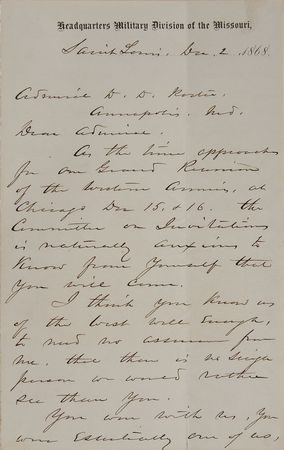 Headquarters Military Division of the Missouri,
Saint Louis, Dec. 2 1868.
Admiral D. D. Porter
Annapolis, Md.
Dear Admiral.
As the time approaches
for our Grand Reunion
of the Western Armies, at
Chicago Dec 15, & 16. the
Committee on Invitations
is naturally anxious to
Know from Yourself that
You will come.
I think you Know us
of the West well Enough,
to need no assurance from
me, that there is no single
person we would rather
see than You.
You were with us, You
were Essentially one of us,